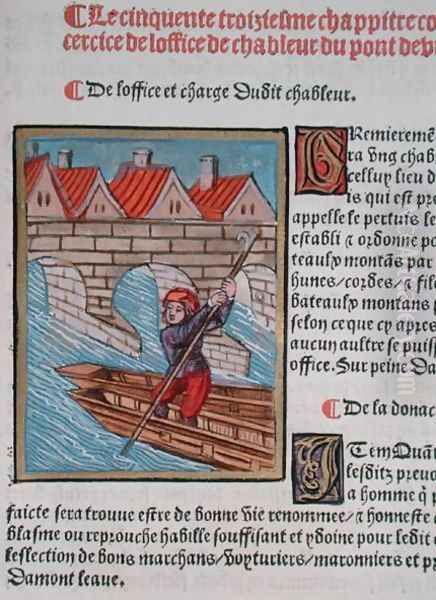 ¶Le cinquente troiziesme chappitre co
cercice de loffice de chableur du pont de
¶De loffice et charge Dudit chableur.
PRemiereme
ra vng chab
celluy lieu d
is qui est pre
appelle le pertuis le
establi ⁊ ordonne po
teaulx montãs par
hunes/cordes/⁊ file
bateaulx montans p
selon ce que cy apres
aucun aultre se puis
office. Sur peine Da
¶De la donac
ITem Quãt
lesditz preuo
a homme q̃ p
faicte sera trouue estre de bonne vie renommee/⁊ honneste
blasme ou reprouche habille souffisant et ydoine pour ledit
leslection de bons marchans/voyturiers/maronniers et pr
Damont leaue.